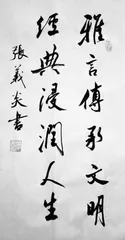 雅言傳承文明
經典浸潤人生
張義炎書